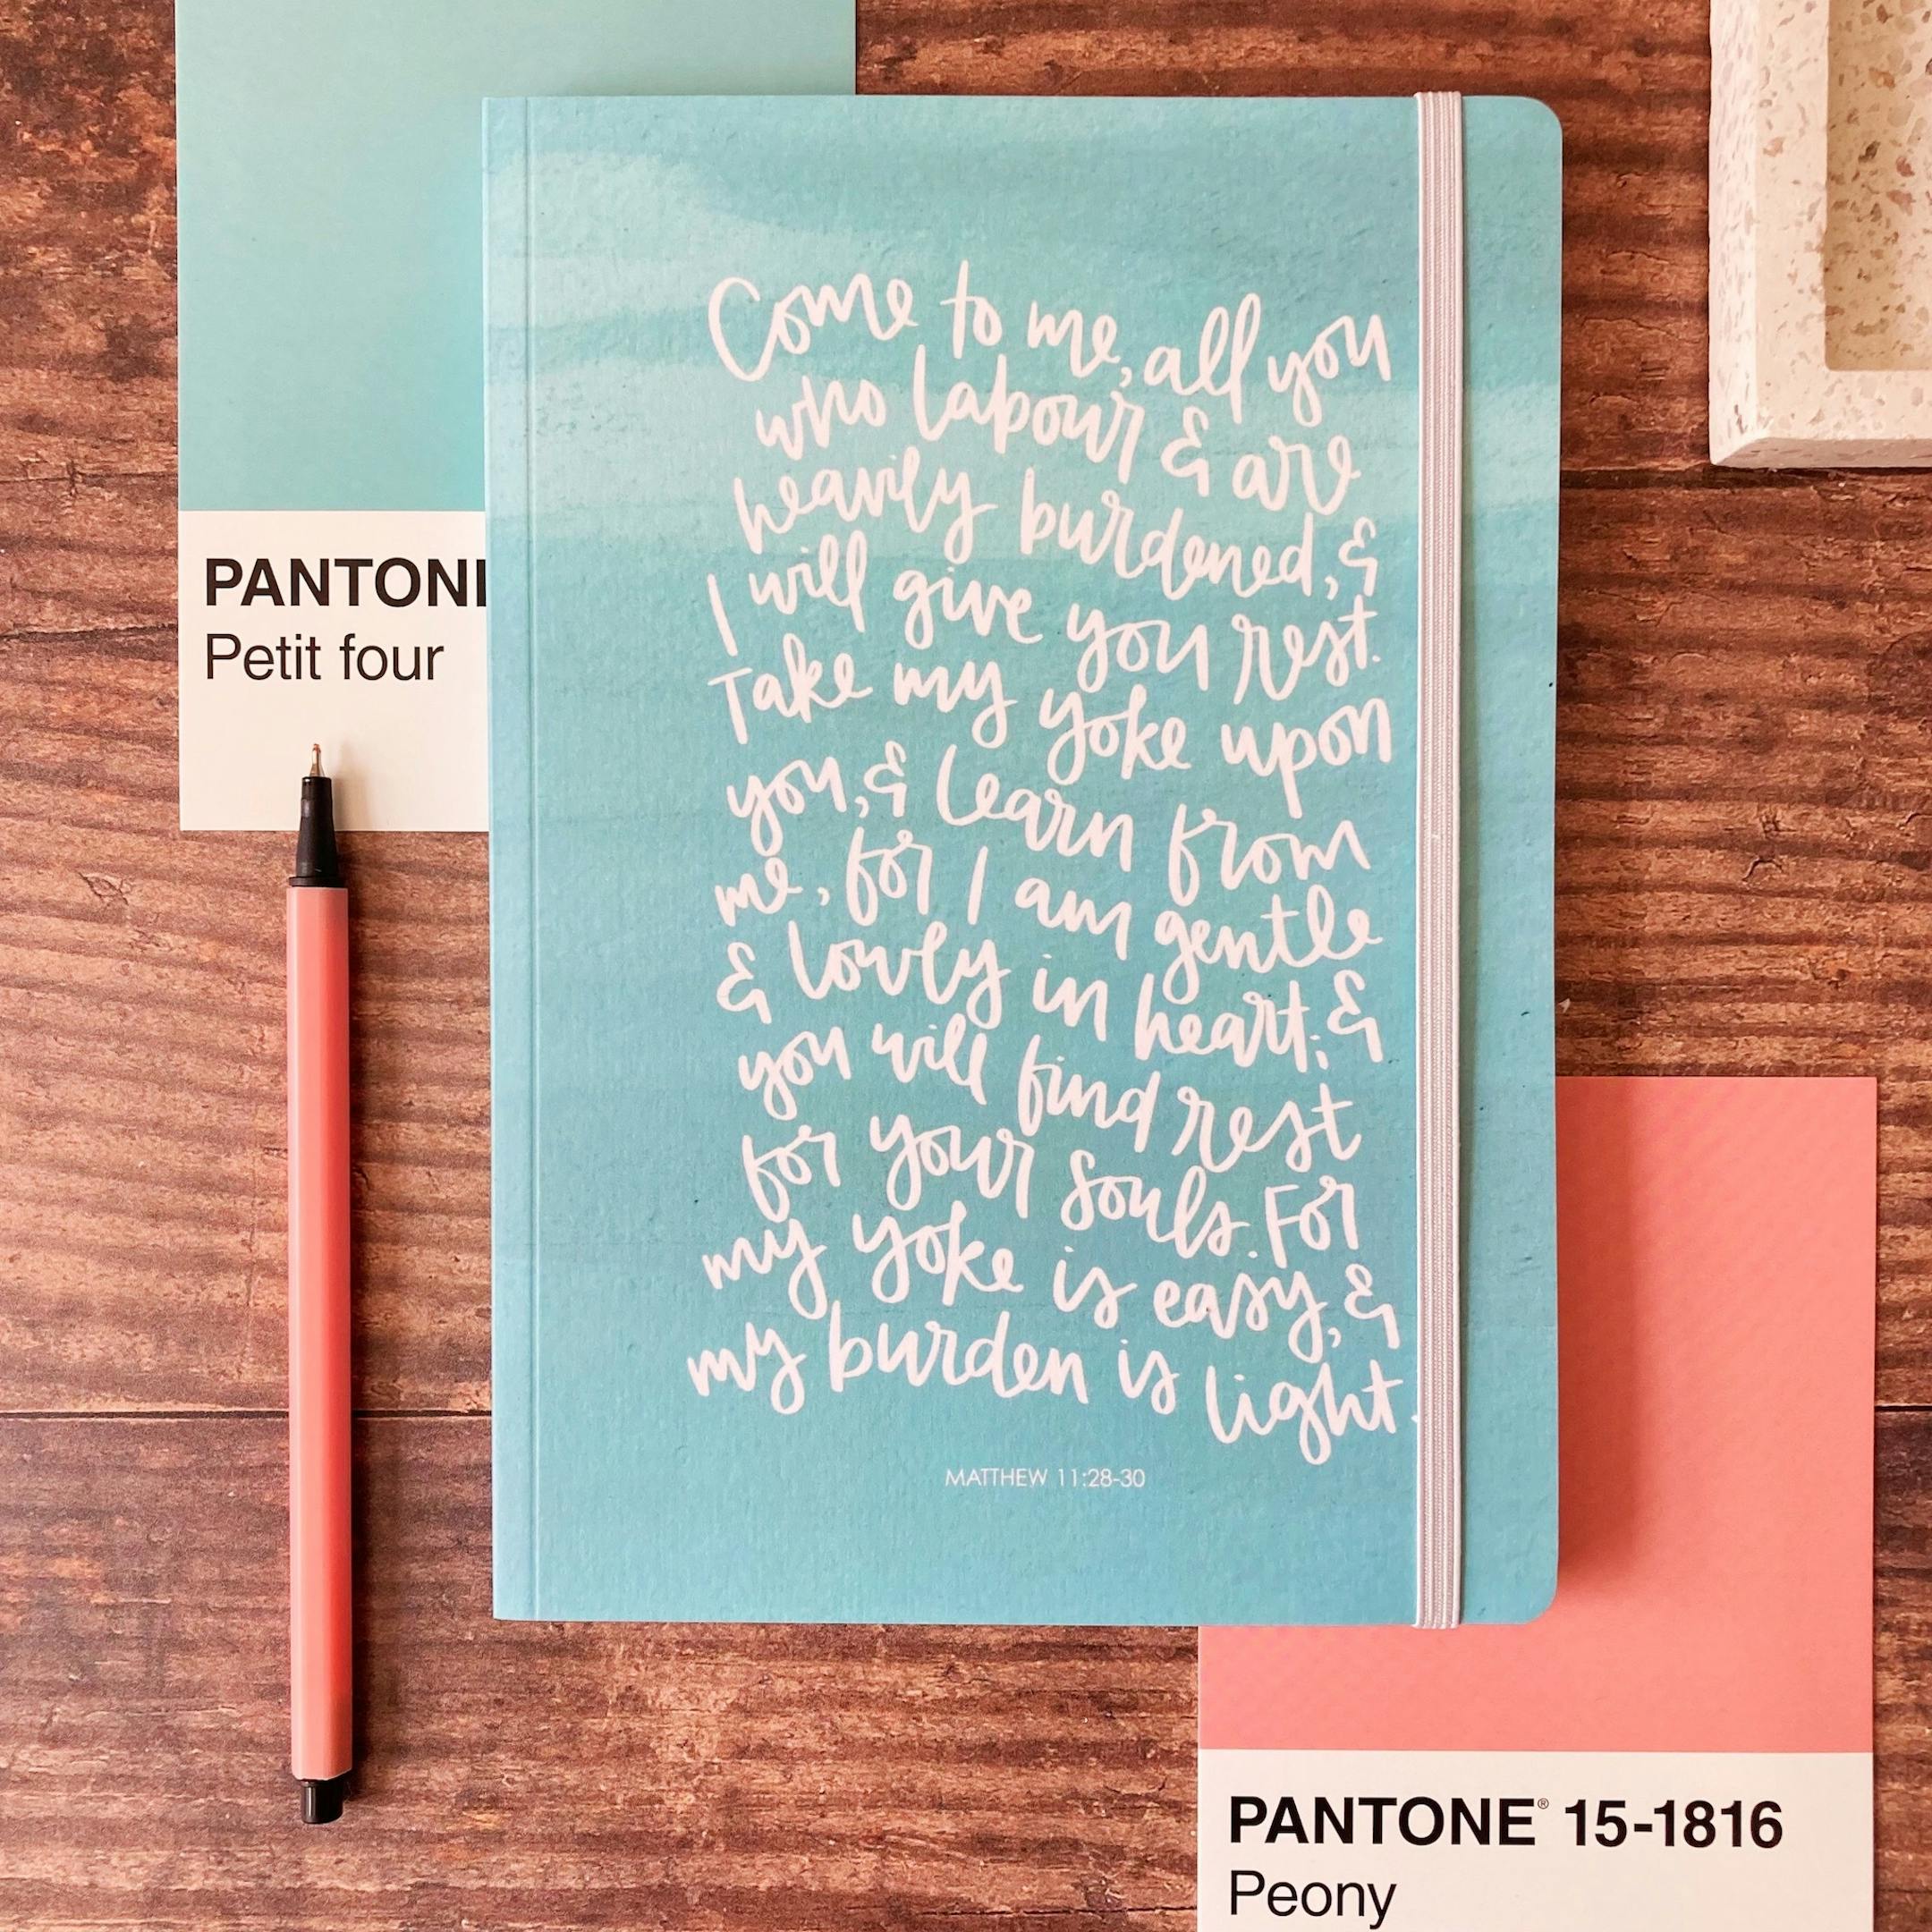 PANTON
Petit four
Come to me, all you
who labour & are
heavily burdened, &
I will give you rest.
Take my yoke upon
you, & learn from
me, for I am gentle
& lowly in heart; &
you will find rest
for your souls. For
my yoke is easy, &
my burden is light.
MATTHEW 11:28-30
PANTONE® 15-1816
Peony